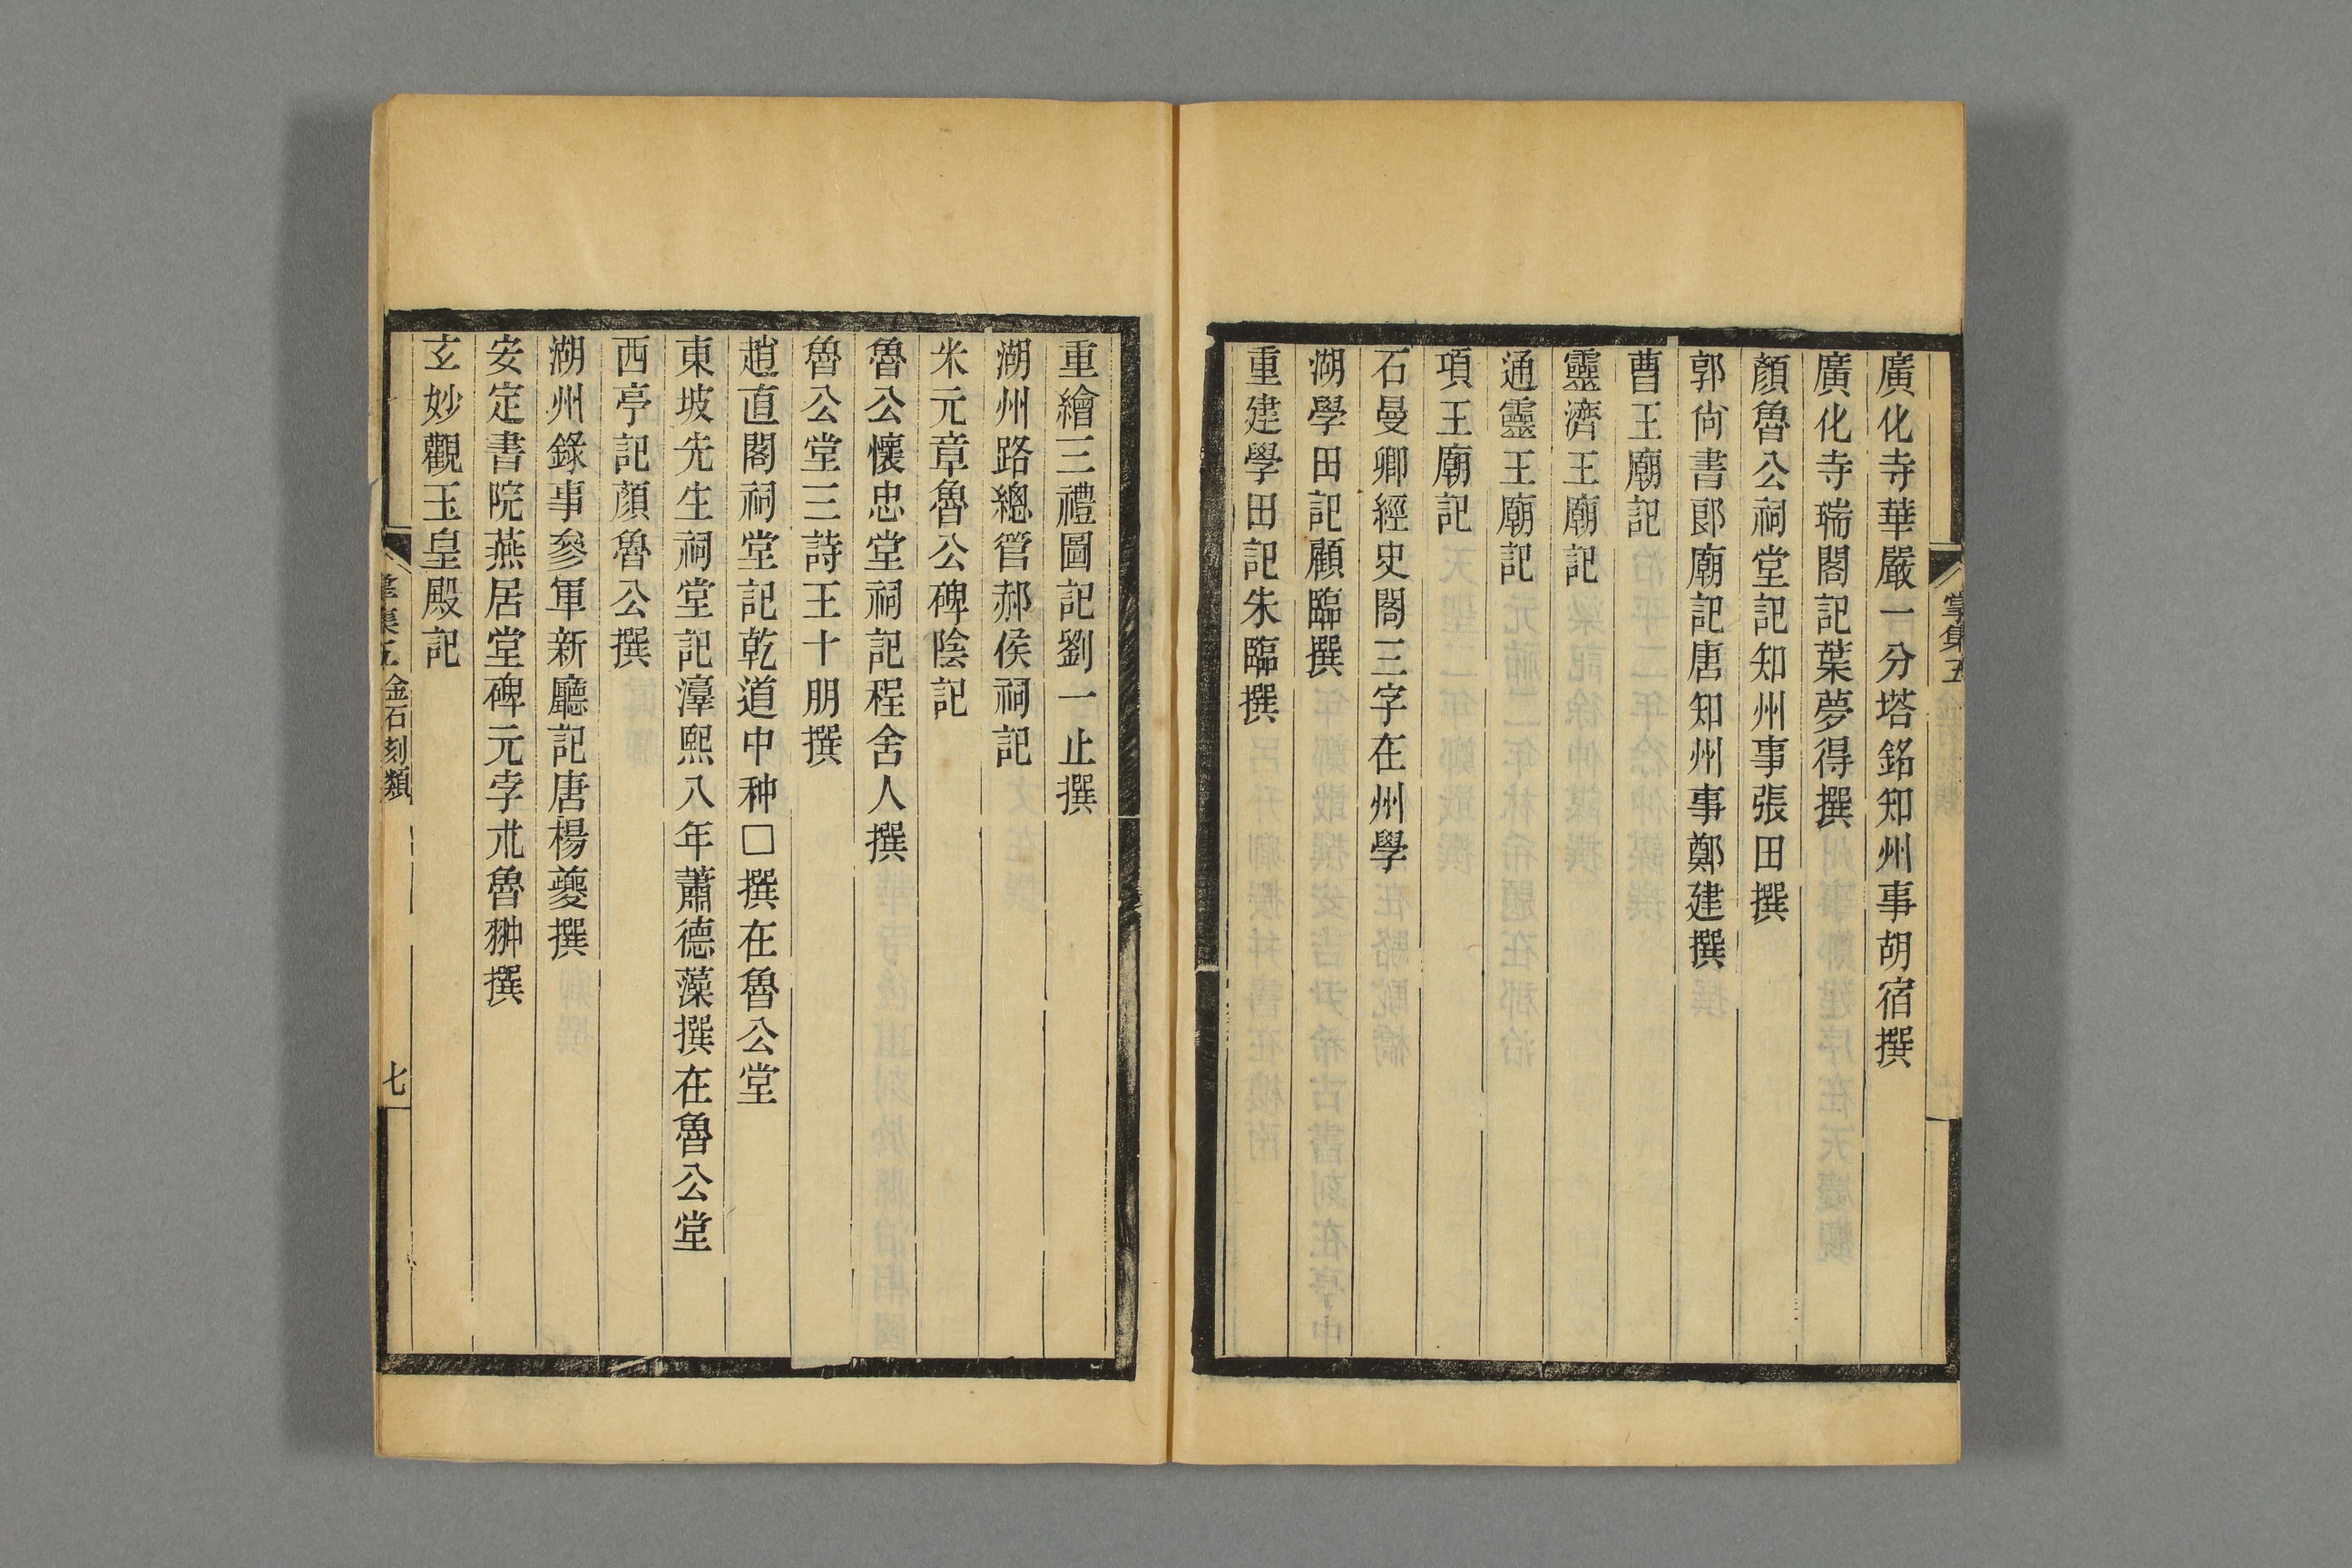 廣化寺華嚴一分塔銘知州事胡宿撰
廣化寺瑞閣記葉夢得撰
顏魯公祠堂記知州事張田撰
郭尙書郞廟記唐知州事鄭建撰
曹王廟記
靈濟王廟記
通靈王廟記
項王廟記
石曼卿經史閣三字在州學
湖學田記顧臨撰
重建學田記朱臨撰
掌集五
重繪三禮圖記劉一止撰
湖州路總管郝侯祠記
米元章魯公碑陰記
魯公懷忠堂祠記程舍人撰
魯公堂三詩王十朋撰
趙直閣祠堂記乾道中种□撰在魯公堂
東坡先生祠堂記淳熙八年蕭德藻撰在魯公堂
西亭記顏魯公撰
湖州錄事參軍新廳記唐楊夔撰
安定書院燕居堂碑元孛朮魯翀撰
玄妙觀玉皇殿記
掌集五 金石刻類 七